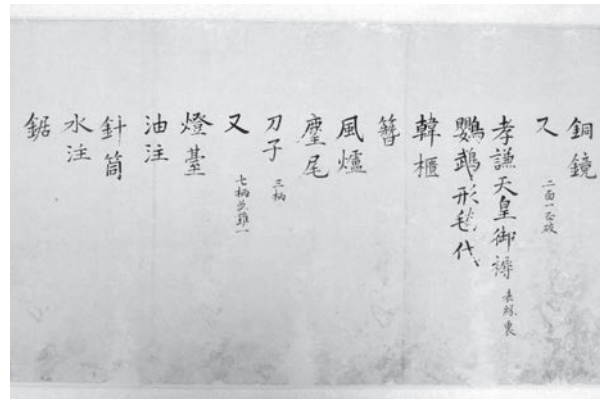 銅鏡
又 二面一面破
孝謙天皇御褥 表緑裏
鸚鵡形毛代
韓櫃
簪
風爐
麈尾
刀子 三柄
又 七柄並雖一
燈臺
油注
針筒
水注
鋸